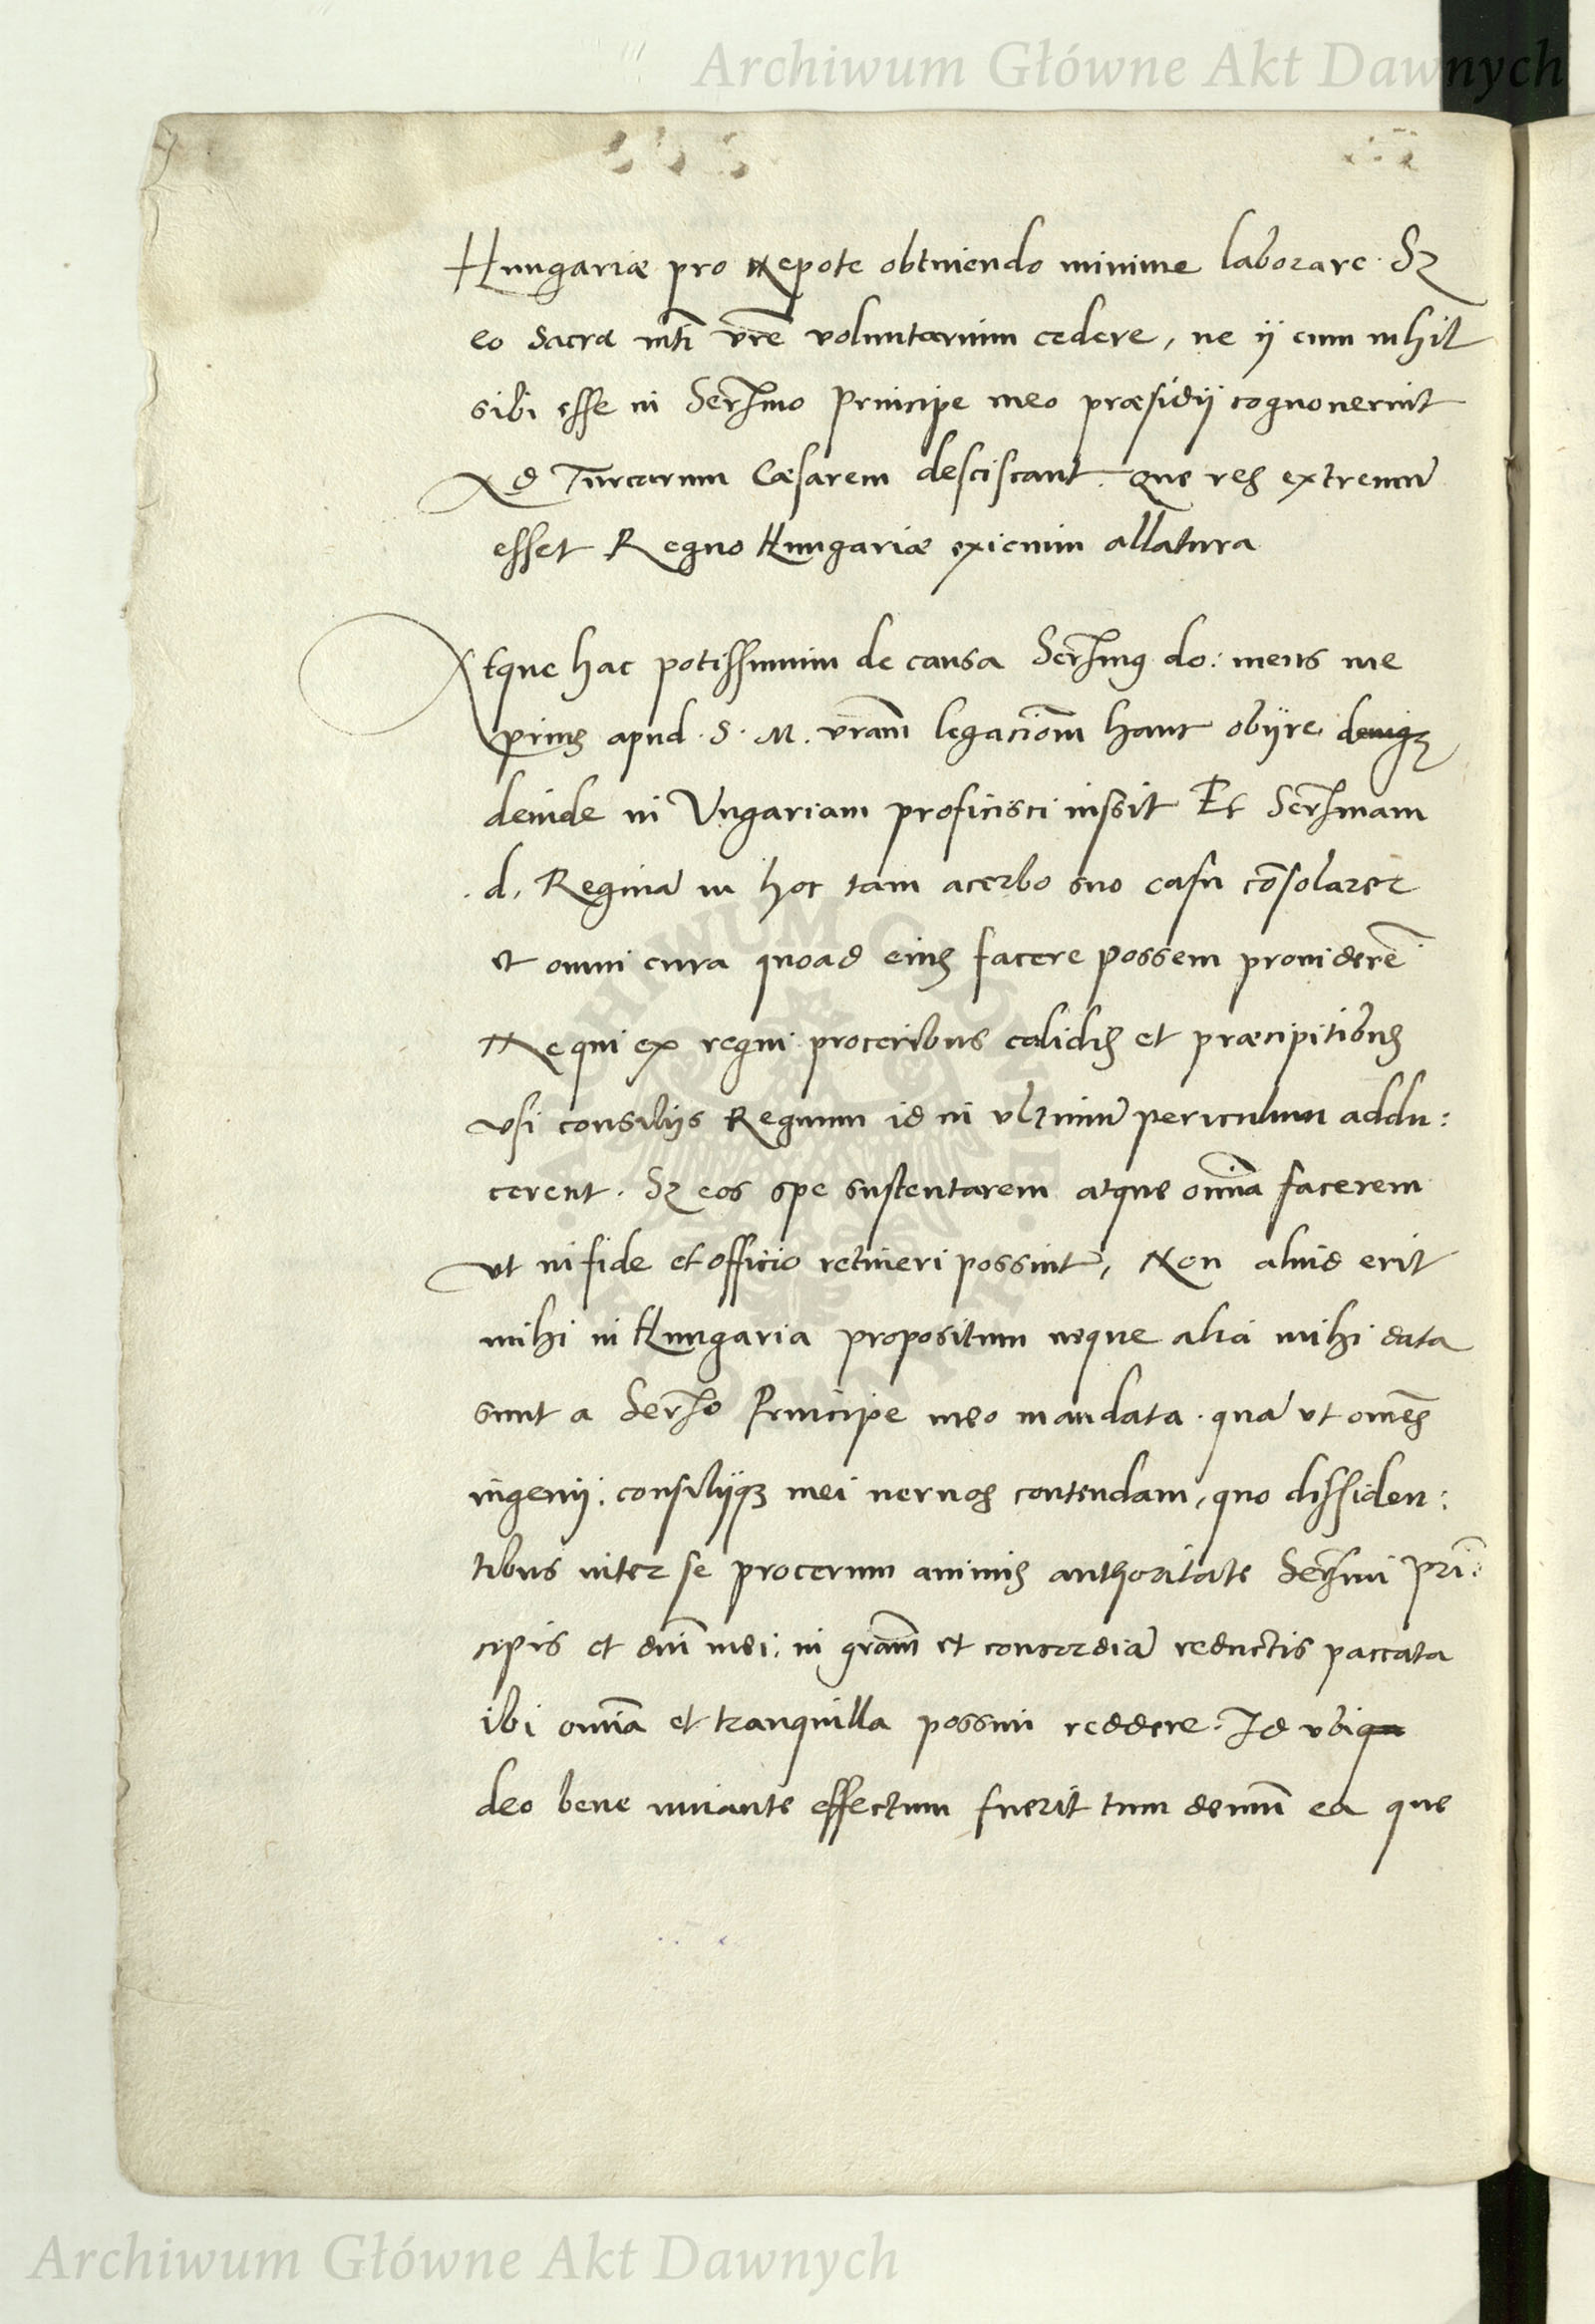 Archiwum Główne Akt Dawnych
Hungariæ pro Nepote obtinendo minime laborare. Sz
eo Sacræ mti vre voluntarium cedere, ne ij cum nihil
sibi esse in Sermo Principe meo præsidij cognouerint
Ad Turcarum Cæsarem desciscant. Que res extremu̅
esset Regno Hungariæ exicium allatura
Atque hac potissimum de causa Sermus do: meus me
prius apud .S. M. vram legacio̅m hanc obijre deniqz
deinde in Vngariam proficisci iussit Et Sermam
.d. Regina̅ in hoc tam acerbo suo casu co̅solarer
et omni cura quoad eius facere possem prouidere̅
Ne qui ex regni proceribus calidis et præcipitibus
vsi consilijs Regnum id in vltimu̅ periculum addu:
cerent. Sz eos spe sustentarem atque omı̅a facerem
ut in fide et officio retineri possint, Non aliud erit
mihi in Hungaria propositum neque alia mihi data
sunt a Sermo Principe meo mandata. qua̅ ut omes
ingenij. consilijqz mei neruos contendam, quo dissiden:
tibus inter se procerum animis authoritate Sermi Pri̅:
cipis et dni̅ mei. in gram et concordia̅ reductis paccata
ibi omı̅a et tranquilla possim reddere. Id vbi
deo bene iuuante effectum fuerit tum demu̅ ea que
ARCHIWUM GŁÓWNE AKT DAWNYCH
Archiwum Główne Akt Dawnych